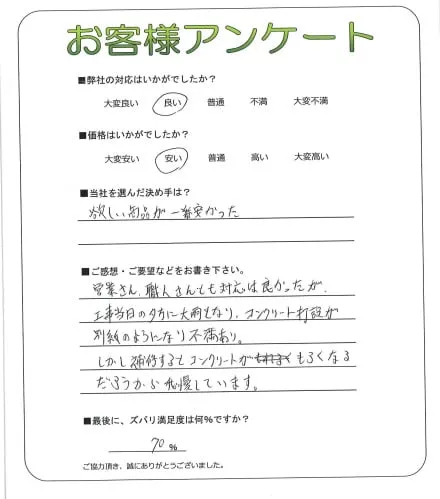 お客様アンケート
■弊社の対応はいかがでしたか？
大変良い 良い 普通 不満 大変不満
■価格はいかがでしたか？
大変安い 安い 普通 高い 大変高い
■当社を選んだ決め手は？
欲しい商品が一番安かった
■ご感想・ご要望などをお書き下さい。
営業さん、職人さんとも対応は良かったが、
工事当日の夕方に大雨となり、コンクリート打設が
別紙のようになり不満あり。
しかし補修するとコンクリートが もろくなる
だろうから我慢しています。
■最後に、ズバリ満足度は何%ですか？
70 %
ご協力頂き、誠にありがとうございました。